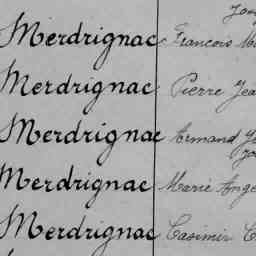 Merdrignac François
Merdrignac Pierre
Merdrignac Armand
Merdrignac Marie Ange
Merdrignac Casimir